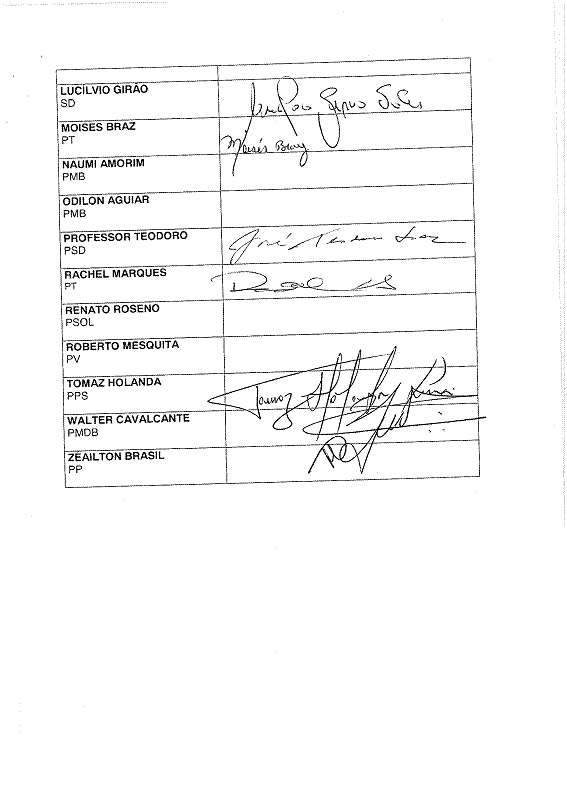 LUCÍLVIO GIRÃO
SD
MOISES BRAZ
PT
Moisés Braz
NAUMI AMORIM
PMB
ODILON AGUIAR
PMB
PROFESSOR TEODORO
PSD
José Teodoro
RACHEL MARQUES
PT
RENATO ROSENO
PSOL
ROBERTO MESQUITA
PV
TOMAZ HOLANDA
PPS
Tomaz Holanda
WALTER CAVALCANTE
PMDB
ZEAILTON BRASIL
PP